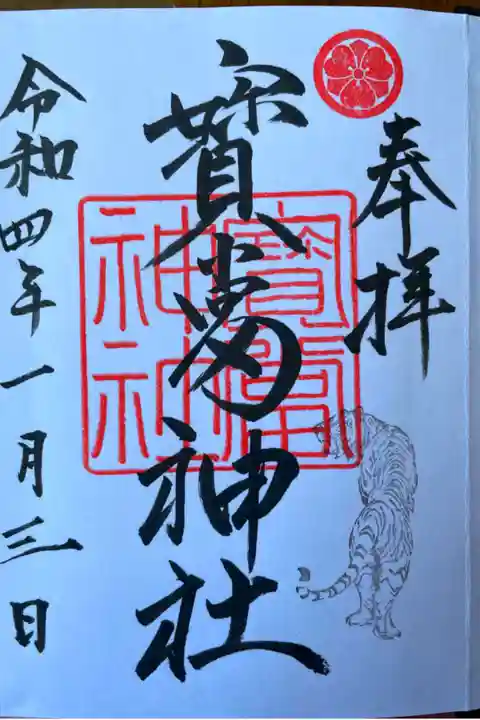 奉拝
寳當神社
寳當
神社
令和四年一月三日